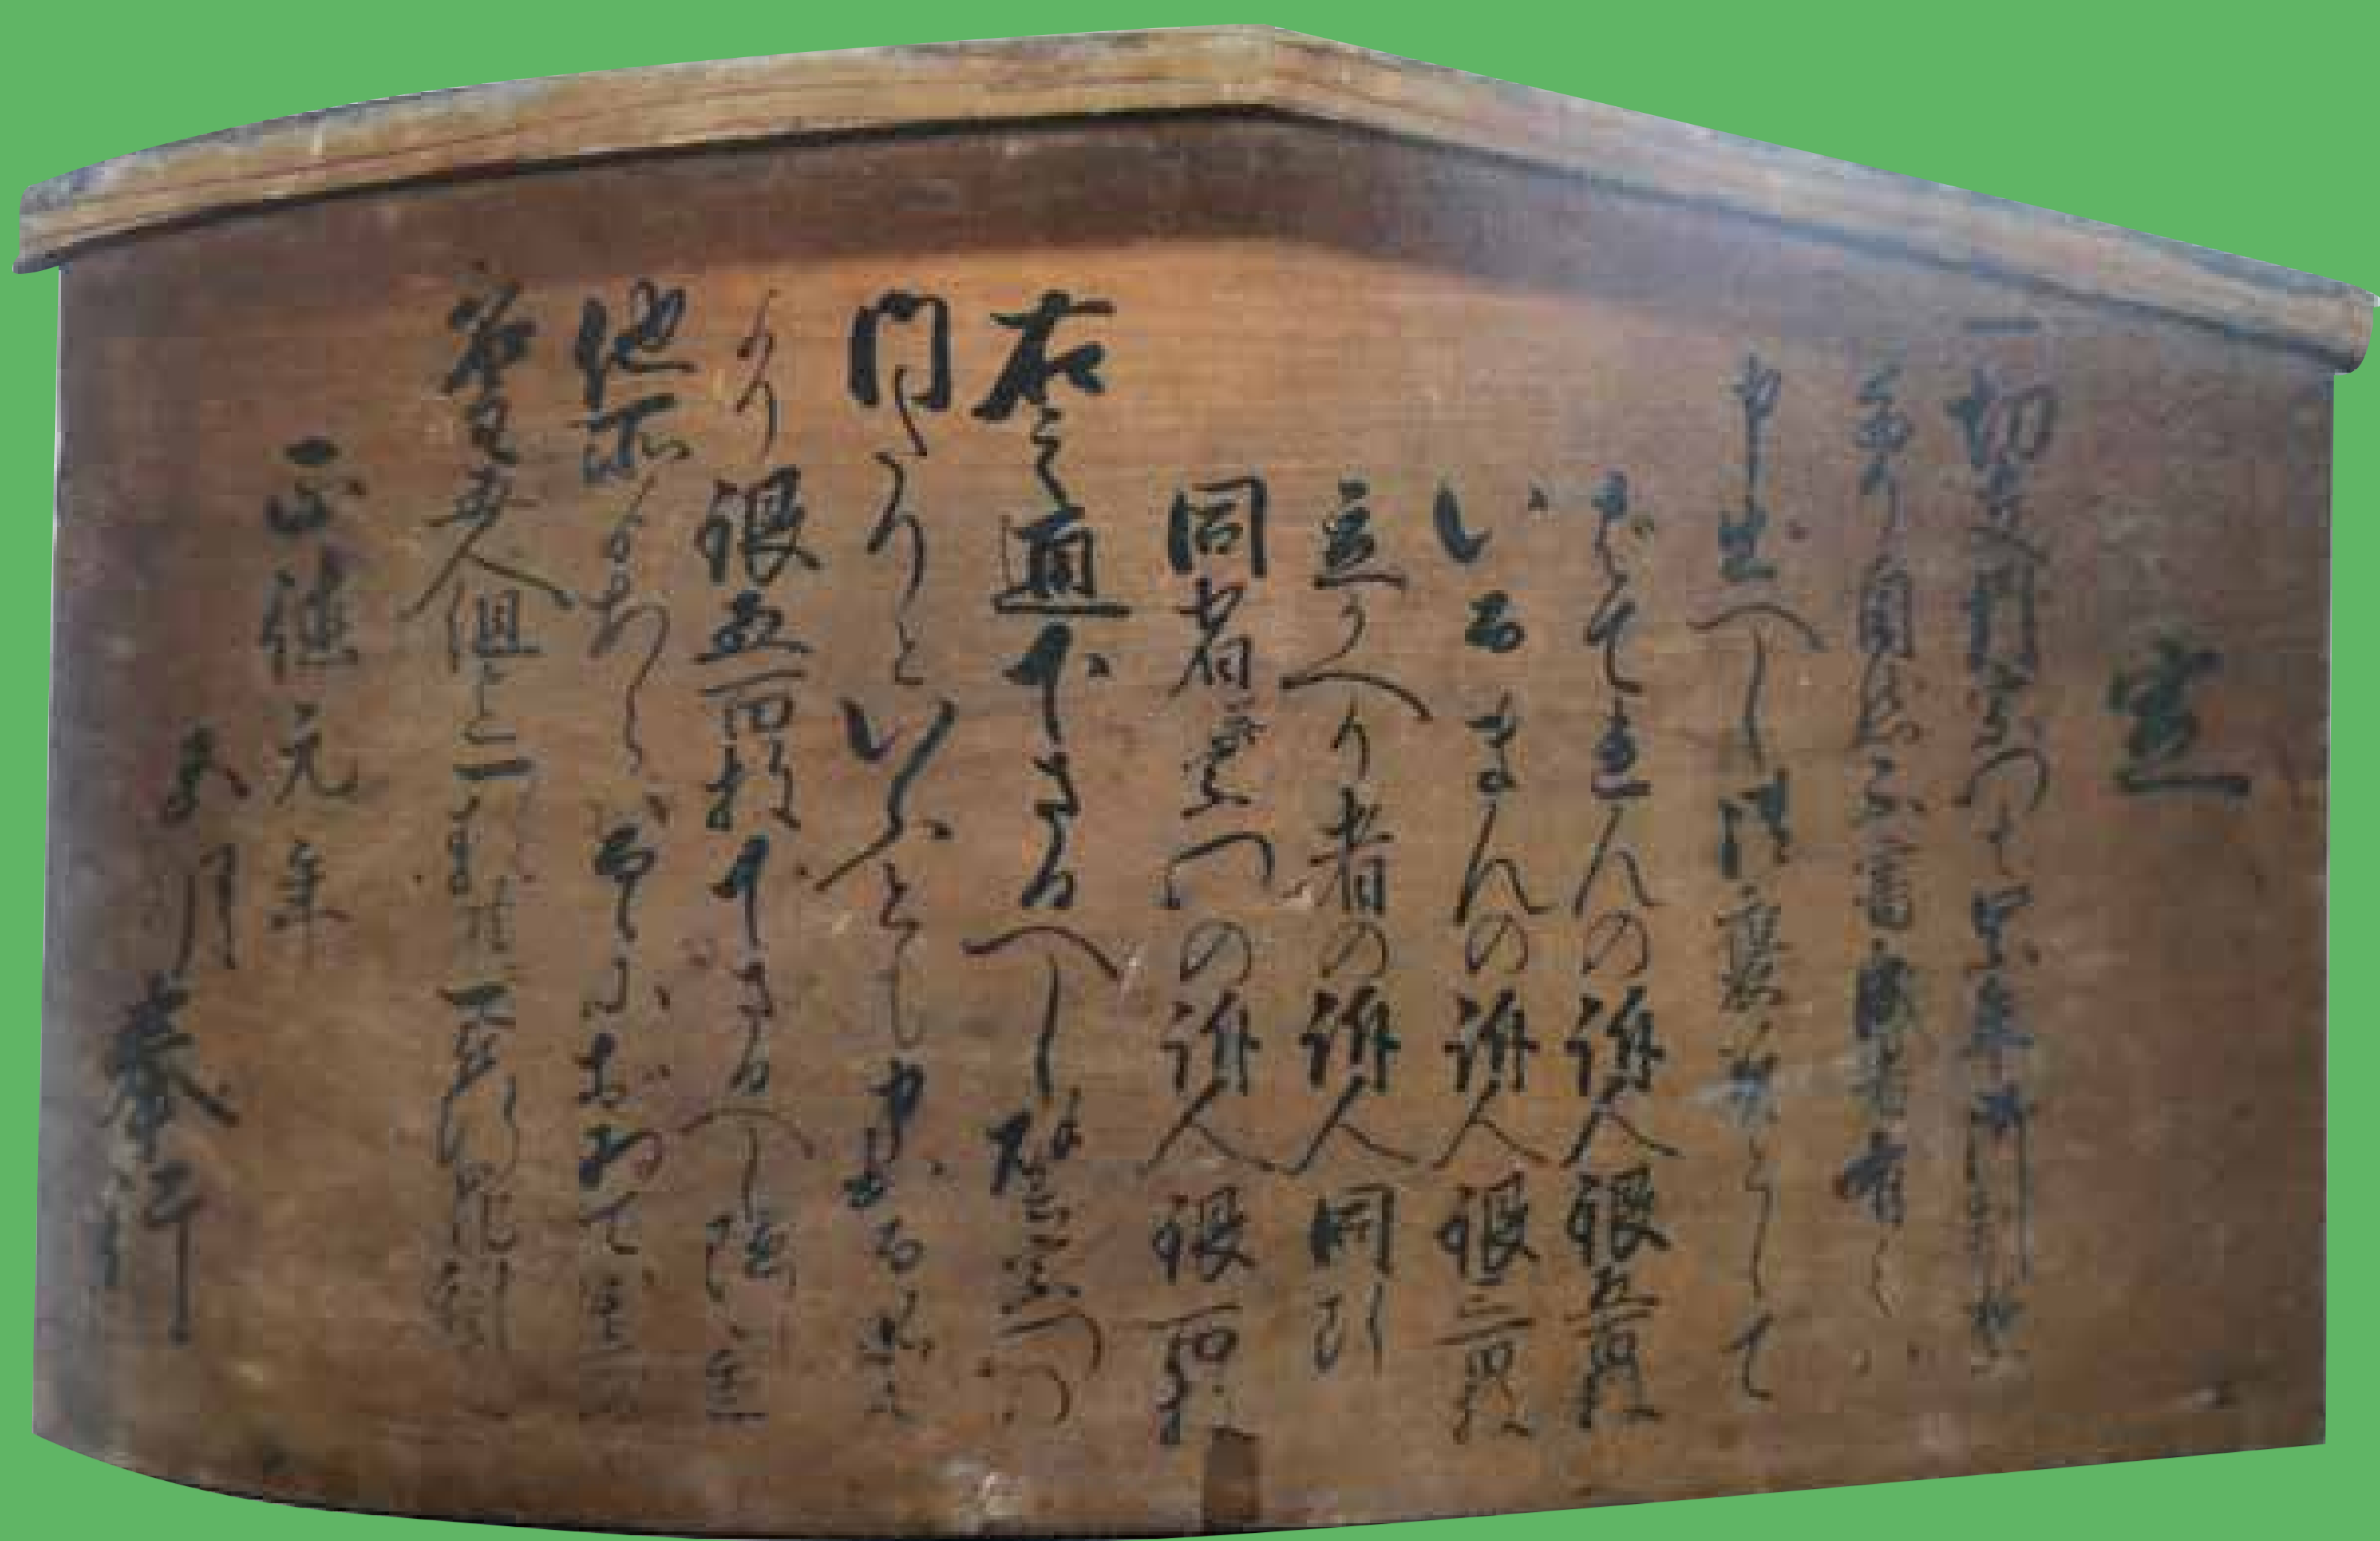 定
切支丹宗門は累年御制禁
たり自然不審成者有之ハ
申出へし御褒美として
ばてれんの訴人銀五百枚
いるまんの訴人銀三百枚
立かへり者の訴人同断
同者并宗門の訴人銀百枚
右之通下さるへし譬宗門の
門たりといふとも申出る品に
より銀五百枚下さるへし隠置
他所よりあらハるゝにおゐてハ
五人組迄一類可被行罪科
正徳元年
五月
奉行